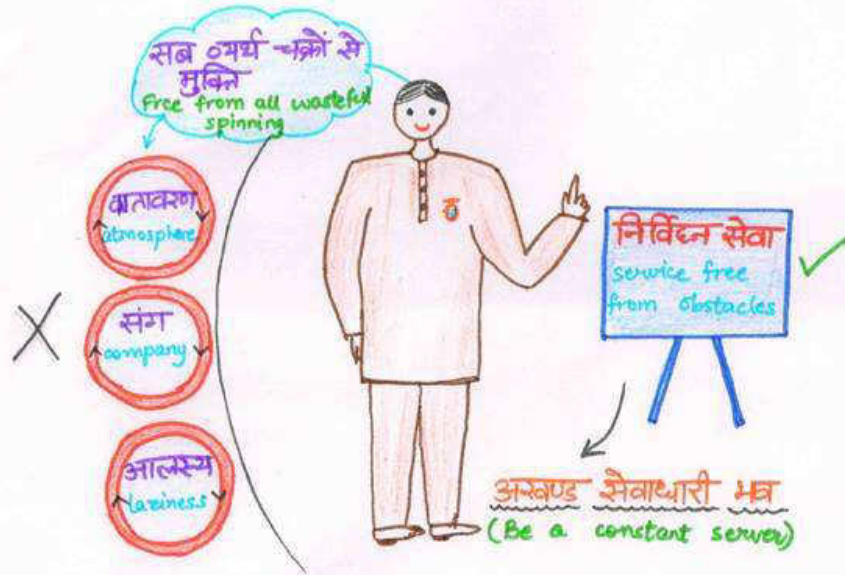 सब व्यर्थ चक्रों से
मुक्ति
Free from all wasteful
spinning
वातावरण
atmosphere
संग
company
आलस्य
laziness
निर्विघ्न सेवा
service free
from obstacles
अखण्ड सेवाधारी भव
(Be a constant server)